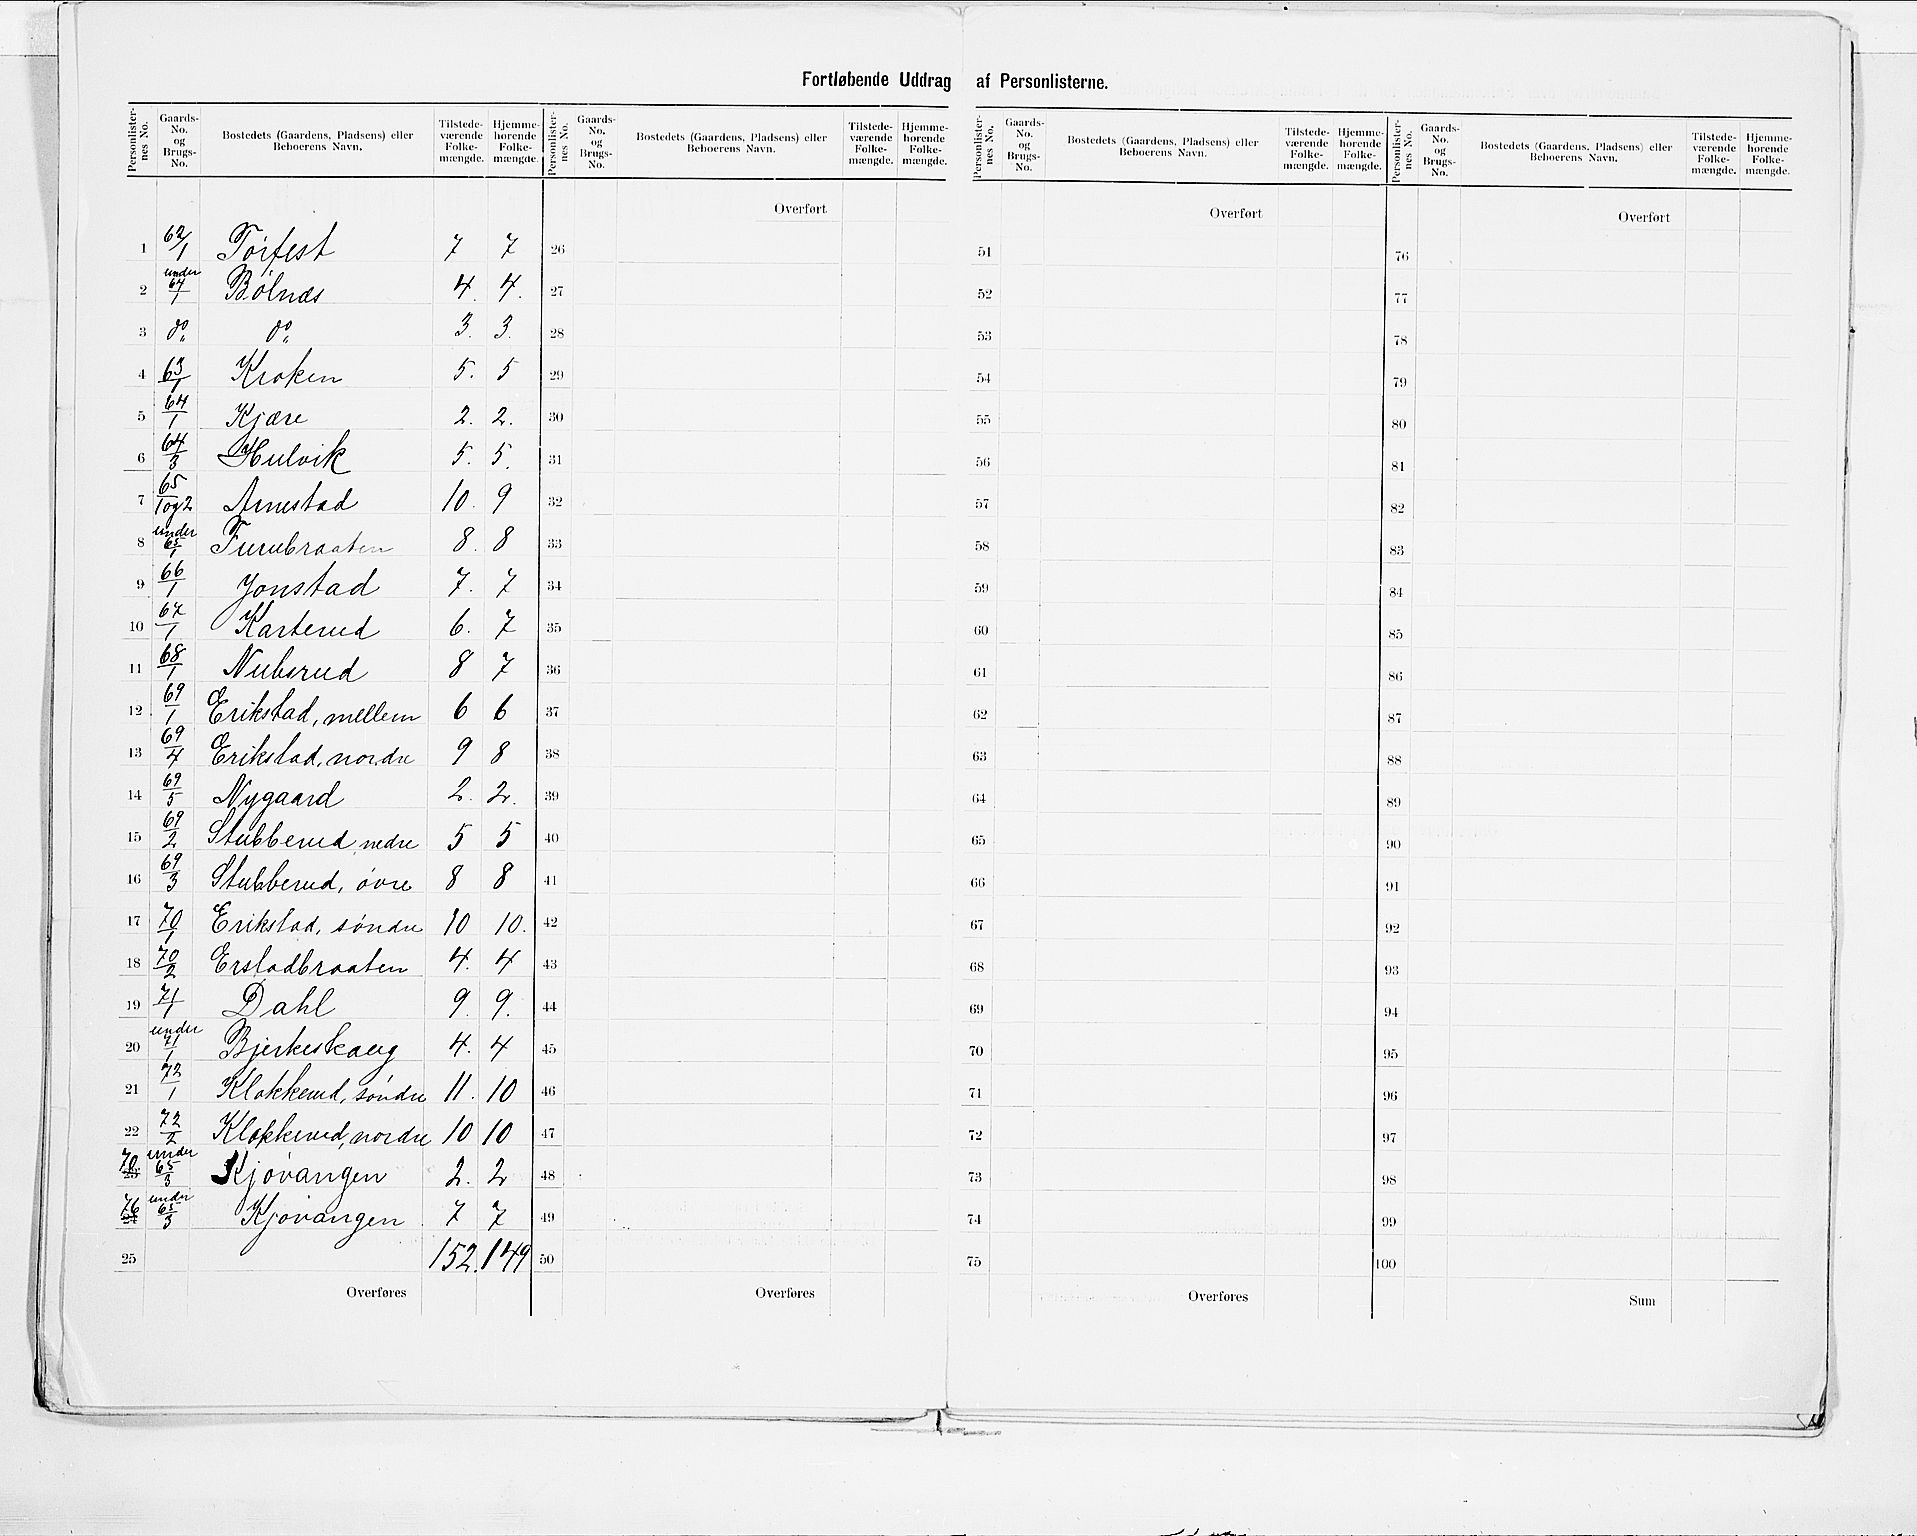 Fortløbende Uddrag af Personlisterne.
Personlister-nes No. | Gaards-No. og Brugs-No. | Bostedets (Gaardens, Pladsens) eller Beboerens Navn. | Tilstede-værende Folke-mængde. | Hjemme-hørende Folke-mængde.
Personlister-nes No. | Gaards-No. og Brugs-No. | Bostedets (Gaardens, Pladsens) eller Beboerens Navn. | Tilstede-værende Folke-mængde. | Hjemme-hørende Folke-mængde.
Personlister-nes No. | Gaards-No. og Brugs-No. | Bostedets (Gaardens, Pladsens) eller Beboerens Navn. | Tilstede-værende Folke-mængde. | Hjemme-hørende Folke-mængde.
Personlister-nes No. | Gaards-No. og Brugs-No. | Bostedets (Gaardens, Pladsens) eller Beboerens Navn. | Tilstede-værende Folke-mængde. | Hjemme-hørende Folke-mængde.
Overført Overført Overført
1 62/1 Torfest 7 7 26 51 76
2 under 67/1 Bølnæs 4. 4. 27 52 77
3 do do 3. 3. 28 53 78
4 63/1 Kroken 5. 5 29 54 79
5 64/1 Kjære 2. 2. 30 55 80
6 64/3 Hulvik 5. 5. 31 56 81
7 65/1 og 2 Arnestad 10. 9 32 57 82
8 under 65/1 Furubraaten 8. 8 33 58 83
9 66/1 Jonstad 7. 7 34 59 84
10 67/1 Karterud 6. 7 35 60 85
11 68/1 Nuberud 8 7 36 61 86
12 69/1 Erikstad, mellem 6 6 37 62 87
13 69/4 Erikstad, nordre 9 8 38 63 88
14 69/5 Nygaard 2. 2. 39 64 89
15 69/2 Stubberud, nedre 5 5 40 65 90
16 69/3 Stubberud, øvre 8 8 41 66 91
17 70/1 Erikstad, søndre 10 10. 42 67 92
18 70/2 Erstadbraaten 4. 4 43 68 93
19 71/1 Dahl 9. 9. 44 69 94
20 under 71/1 Bjerkeskaug 4. 4 45 70 95
21 72/1 Klokkerud, søndre 11. 10 46 71 96
22 72/2 Klokkerud, nordre 10 10 47 72 97
23 under 65/3 Kjøvangen 2. 2 48 73 98
76 24 under 65/3 Kjøvangen 7 7 49 74 99
25 152. 149 50 75 100
Overføres Overføres Overføres Sum